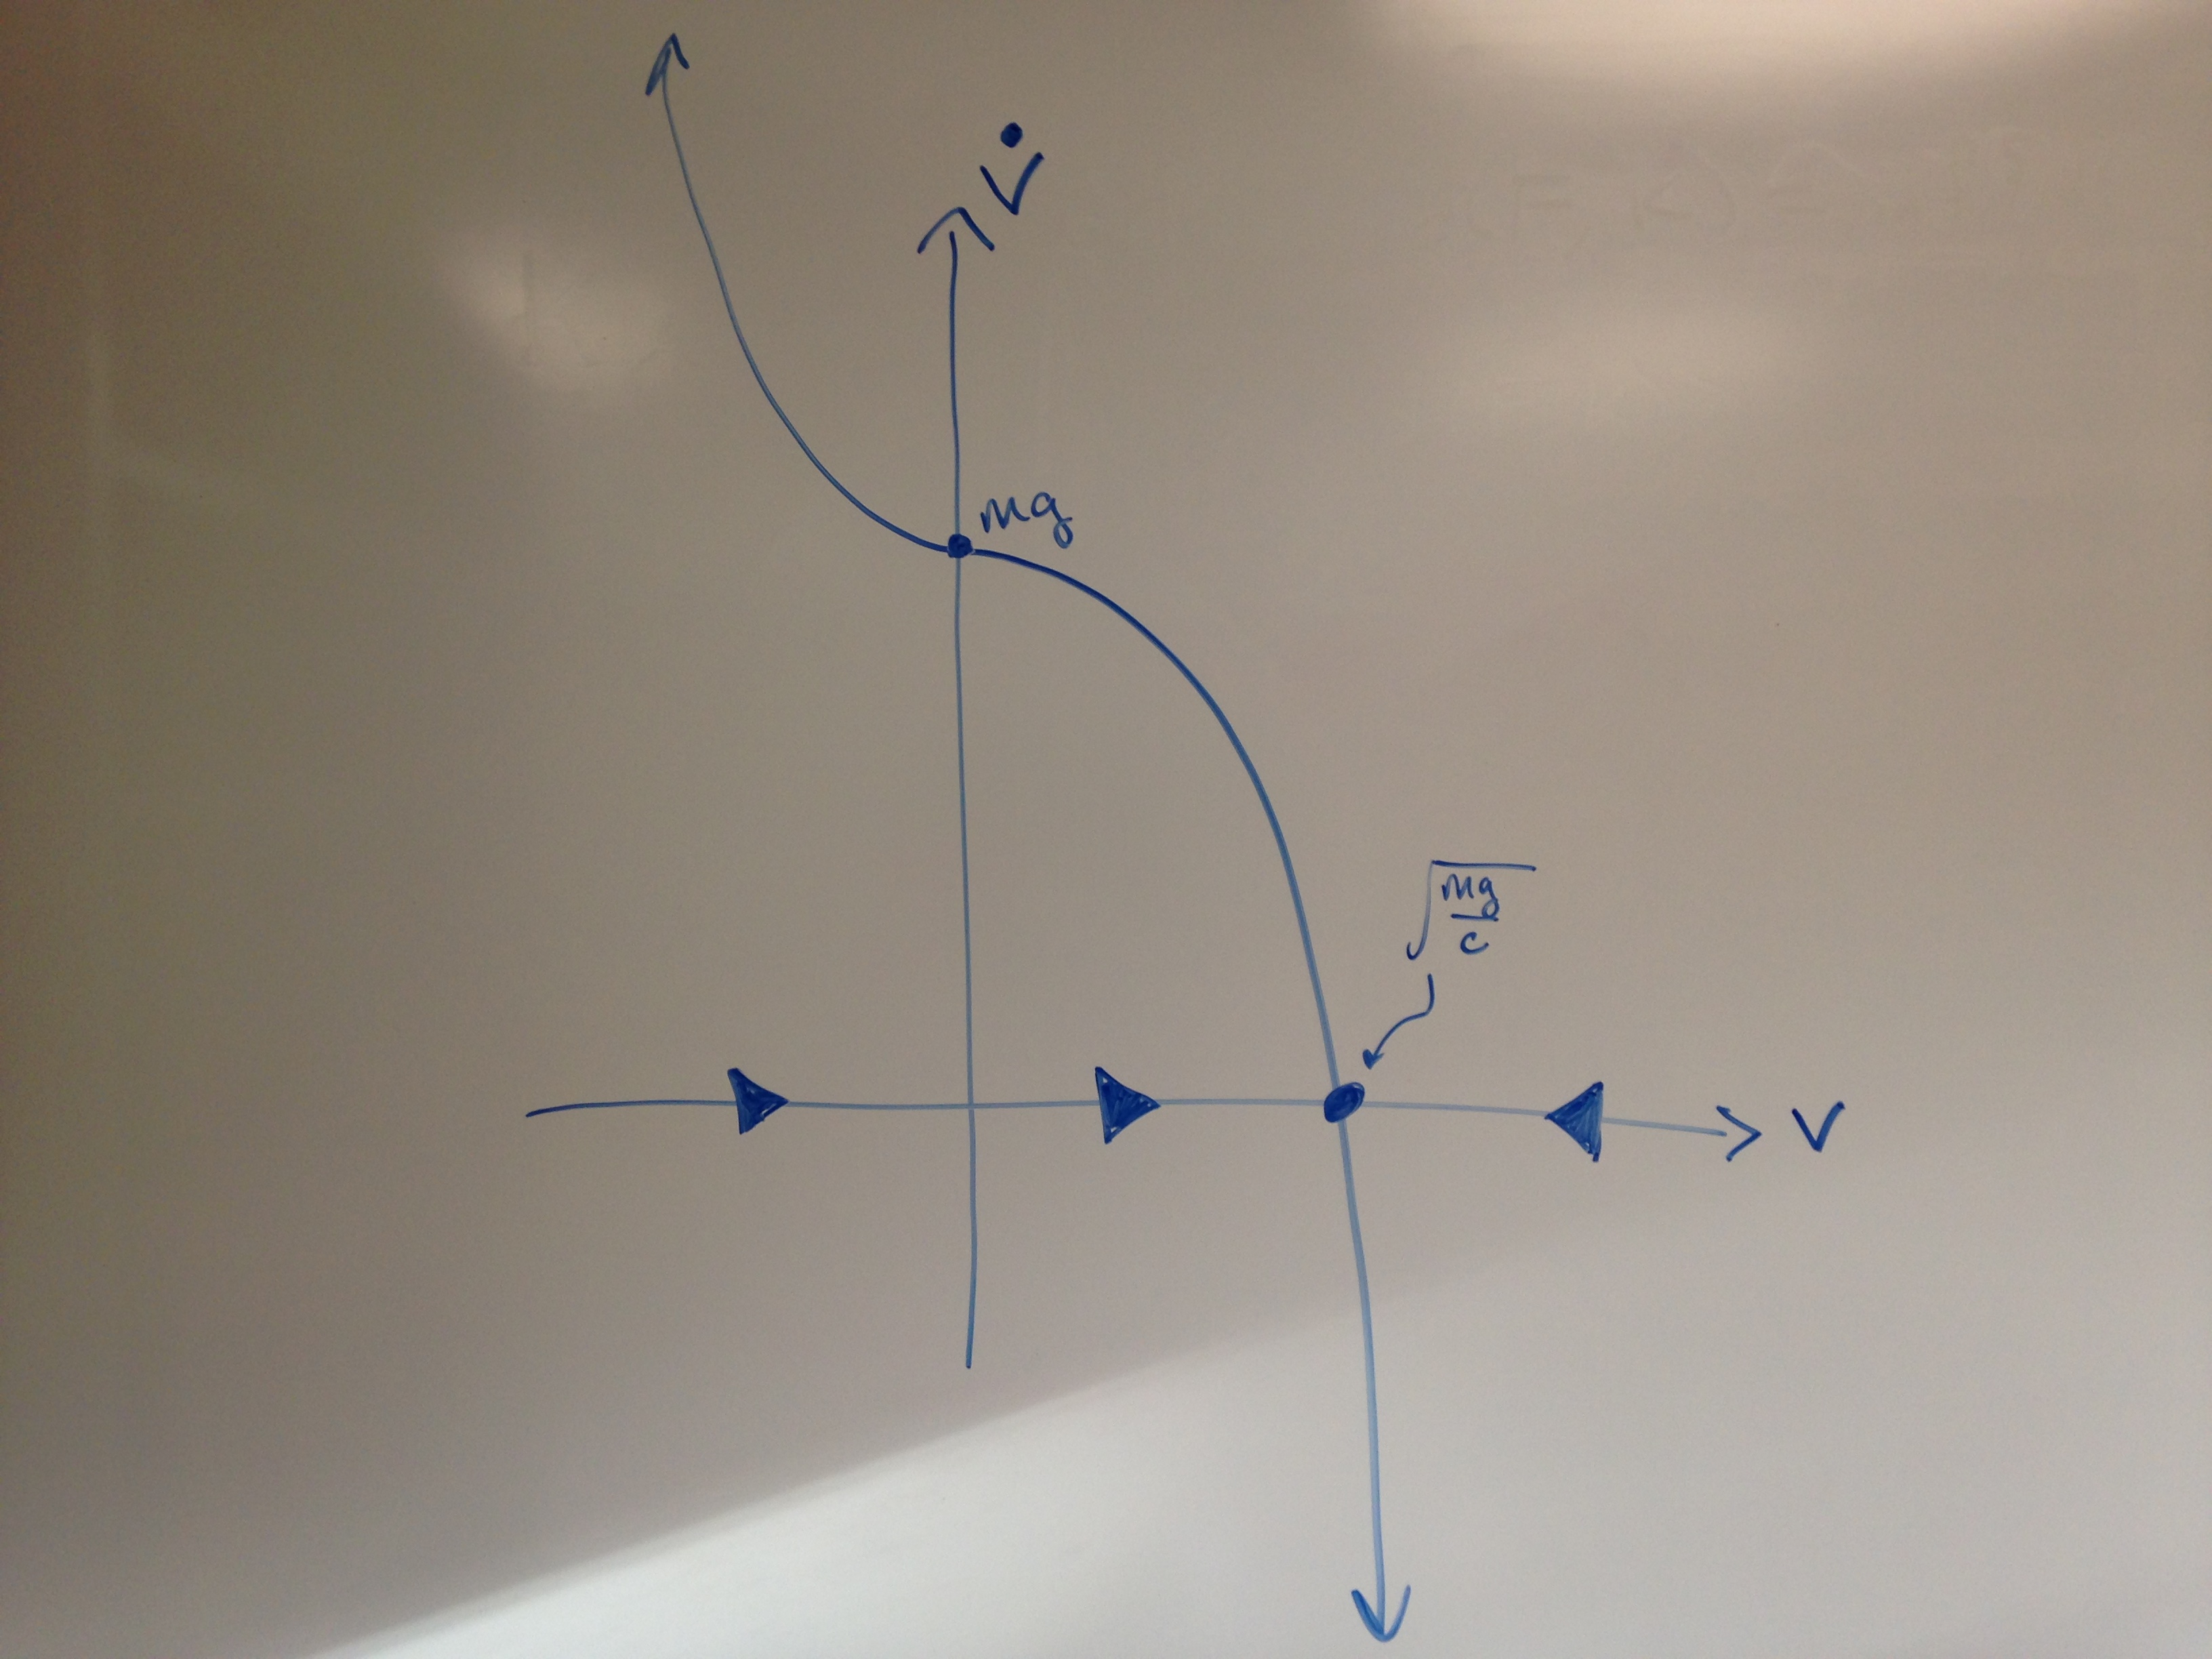 V̇
mg
√(mg/c)
V